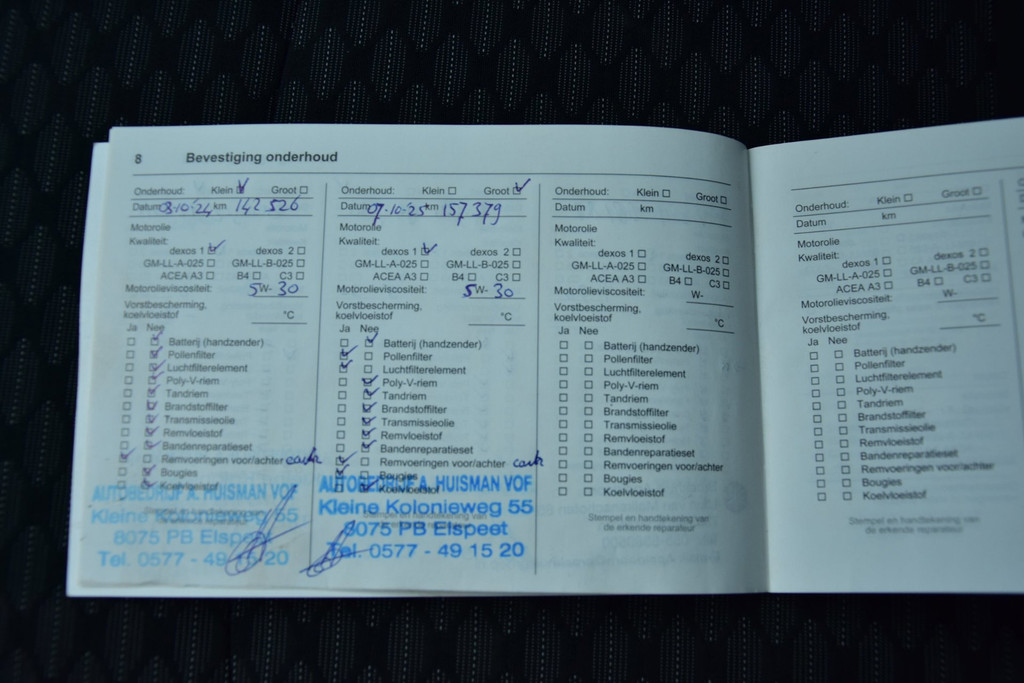 8 Bevestiging onderhoud
Onderhoud: Klein Groot
Datum 08-10-24 km 142 526
Motorolie
Kwaliteit:
dexos 1 dexos 2
GM-LL-A-025 GM-LL-B-025
ACEA A3 B4 C3
Motorolieviscositeit: 5W-30
Vorstbescherming,
koelvloeistof °C
Ja Nee
Batterij (handzender)
Pollenfilter
Luchtfilterelement
Poly-V-riem
Tandriem
Brandstoffilter
Transmissieolie
Remvloeistof
Bandenreparatieset
Remvoeringen voor/achter
Bougies
Koelvloeistof
AUTOBEDRIJF A. HUISMAN VOF
Kleine Kolonieweg 55
8075 PB Elspeet
Tel. 0577 - 49 15 20
Onderhoud: Klein Groot
Datum 07-10-25 km 157379
Motorolie
Kwaliteit:
dexos 1 dexos 2
GM-LL-A-025 GM-LL-B-025
ACEA A3 B4 C3
Motorolieviscositeit: 5W-30
Vorstbescherming,
koelvloeistof °C
Ja Nee
Batterij (handzender)
Pollenfilter
Luchtfilterelement
Poly-V-riem
Tandriem
Brandstoffilter
Transmissieolie
Remvloeistof
Bandenreparatieset
Remvoeringen voor/achter
Bougies
Koelvloeistof
AUTOBEDRIJF A. HUISMAN VOF
Kleine Kolonieweg 55
8075 PB Elspeet
Tel. 0577 - 49 15 20
Onderhoud: Klein Groot
Datum km
Motorolie
Kwaliteit:
dexos 1 dexos 2
GM-LL-A-025 GM-LL-B-025
ACEA A3 B4 C3
Motorolieviscositeit: W-
Vorstbescherming,
koelvloeistof °C
Ja Nee
Batterij (handzender)
Pollenfilter
Luchtfilterelement
Poly-V-riem
Tandriem
Brandstoffilter
Transmissieolie
Remvloeistof
Bandenreparatieset
Remvoeringen voor/achter
Bougies
Koelvloeistof
Stempel en handtekening van
de erkende reparateur
Onderhoud: Klein Groot
Datum km
Motorolie
Kwaliteit:
dexos 1 dexos 2
GM-LL-A-025 GM-LL-B-025
ACEA A3 B4 C3
Motorolieviscositeit: W-
Vorstbescherming,
koelvloeistof °C
Ja Nee
Batterij (handzender)
Pollenfilter
Luchtfilterelement
Poly-V-riem
Tandriem
Brandstoffilter
Transmissieolie
Remvloeistof
Bandenreparatieset
Remvoeringen voor/achter
Bougies
Koelvloeistof
Stempel en handtekening van
de erkende reparateur